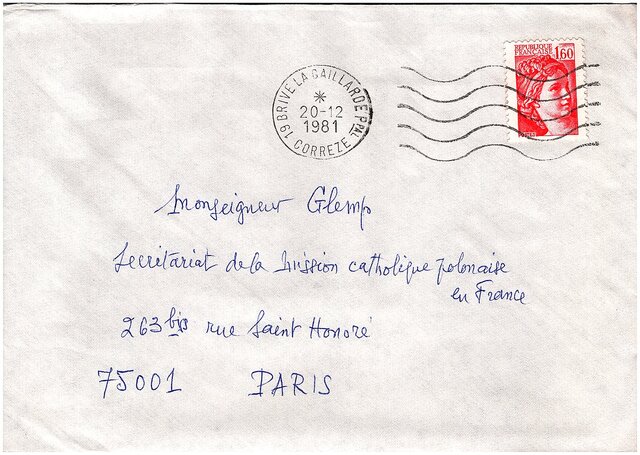 REPUBLIQUE
FRANÇAISE 1,60
19 BRIVE LA GAILLARDE PPAL
*
20-12
1981
CORREZE
Monseigneur Glemp
Secrétariat de la Mission catholique polonaise
en France
263 bis rue Saint Honoré
75001 PARIS